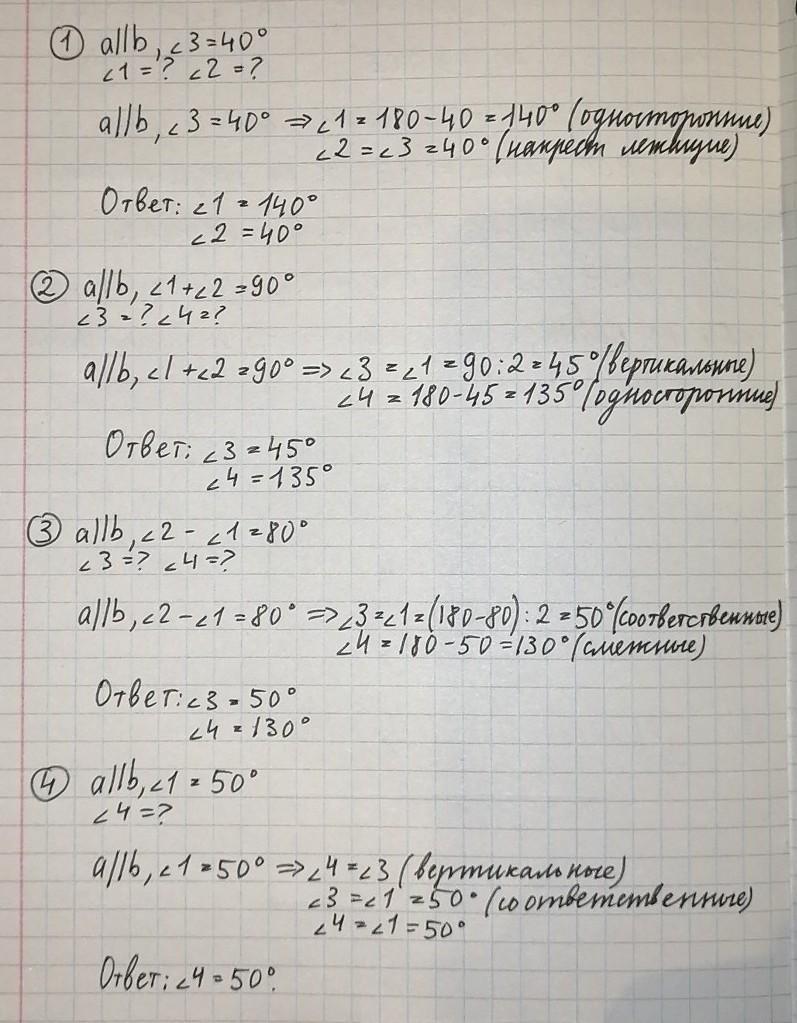 ① a||b, ∠3=40°
∠1=? ∠2=?
a||b, ∠3=40° ⇒ ∠1=180-40=140° (односторонние)
∠2=∠3=40° (накрест лежащие)
Ответ: ∠1=140°
∠2=40°
② a||b, ∠1+∠2=90°
∠3=? ∠4=?
a||b, ∠1+∠2=90° ⇒ ∠3=∠1=90:2=45° (вертикальные)
∠4=180-45=135° (односторонние)
Ответ: ∠3=45°
∠4=135°
③ a||b, ∠2-∠1=80°
∠3=? ∠4=?
a||b, ∠2-∠1=80° ⇒ ∠3=∠1=(180-80):2=50° (соответственные)
∠4=180-50=130° (смежные)
Ответ: ∠3=50°
∠4=130°
④ a||b, ∠1=50°
∠4=?
a||b, ∠1=50° ⇒ ∠4=∠3 (вертикальные)
∠3=∠1=50° (соответственные)
∠4=∠1=50°
Ответ: ∠4=50°.